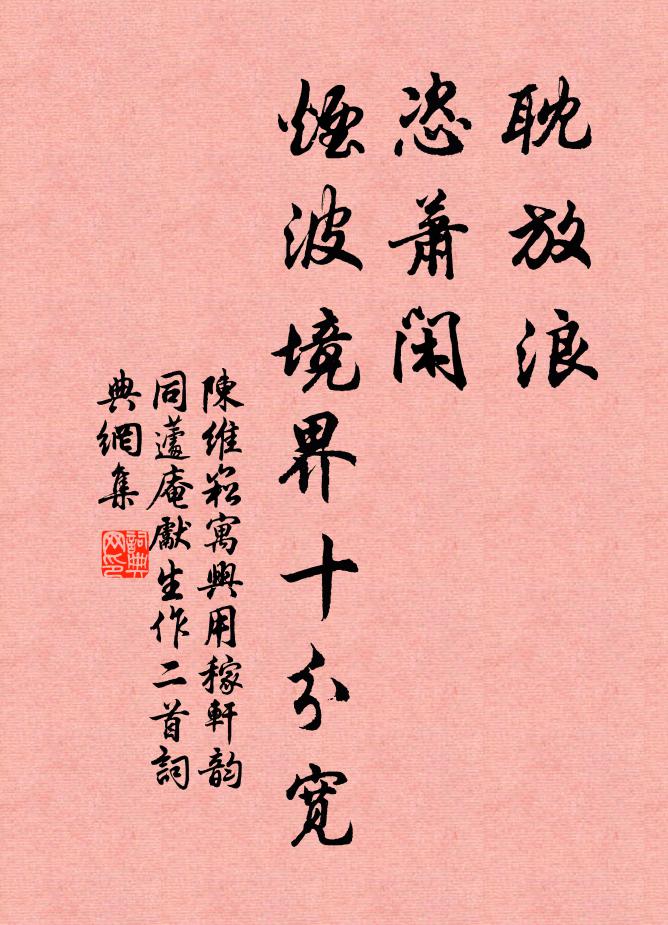 耽放浪
恣蕭閑
煙波境界十分寬
陳維崧寓興用稼軒韵
同蘧庵獻生作二首詞
典網集
詞典网印